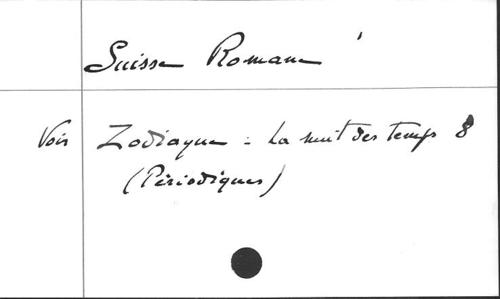 Suisse Romane
Voir Zodiaque : La nuit des temps 8
(Périodiques)